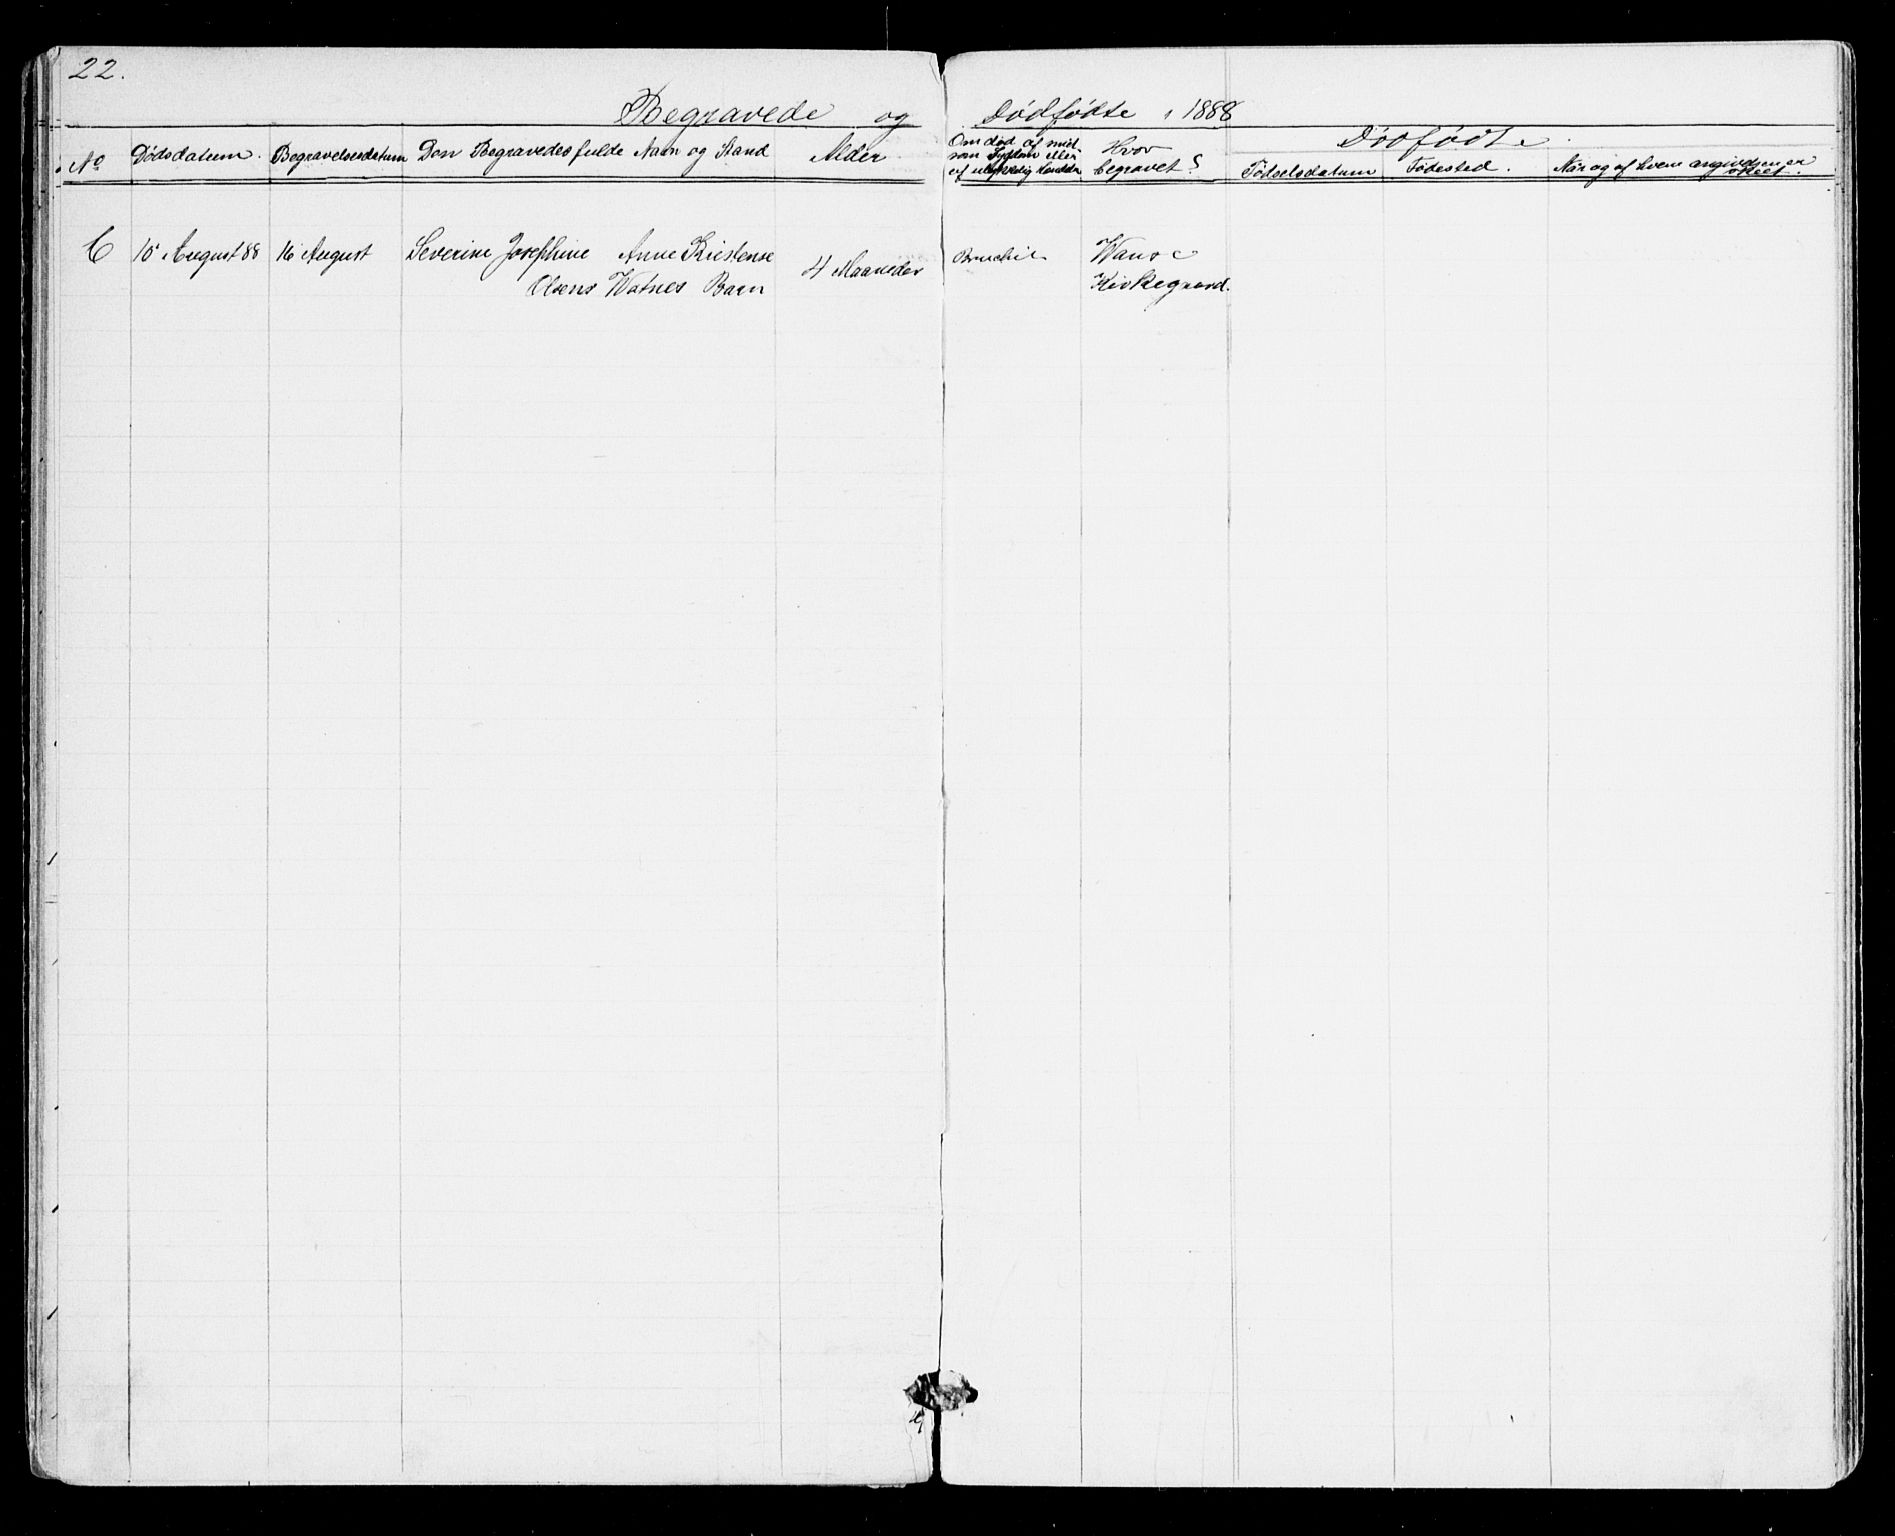 22.
Begravede og Dødfødte i 1888
Dødfødte.
No Dødsdatum. Begravelsesdatum Den Begravedes fulde Navn og Stand Alder
Om død af smit-
som Sygdom eller
af ulykkelig Hændelse
Hvor
begravet?
Fødselsdatum Fødested. Når og af hvem angivelsen er
skeet.
10 August 88 16 August Severine Josephine Anne Kristense
Olsens Watnes Barn 4 Maaneder
Wanse
Kirkegaard.